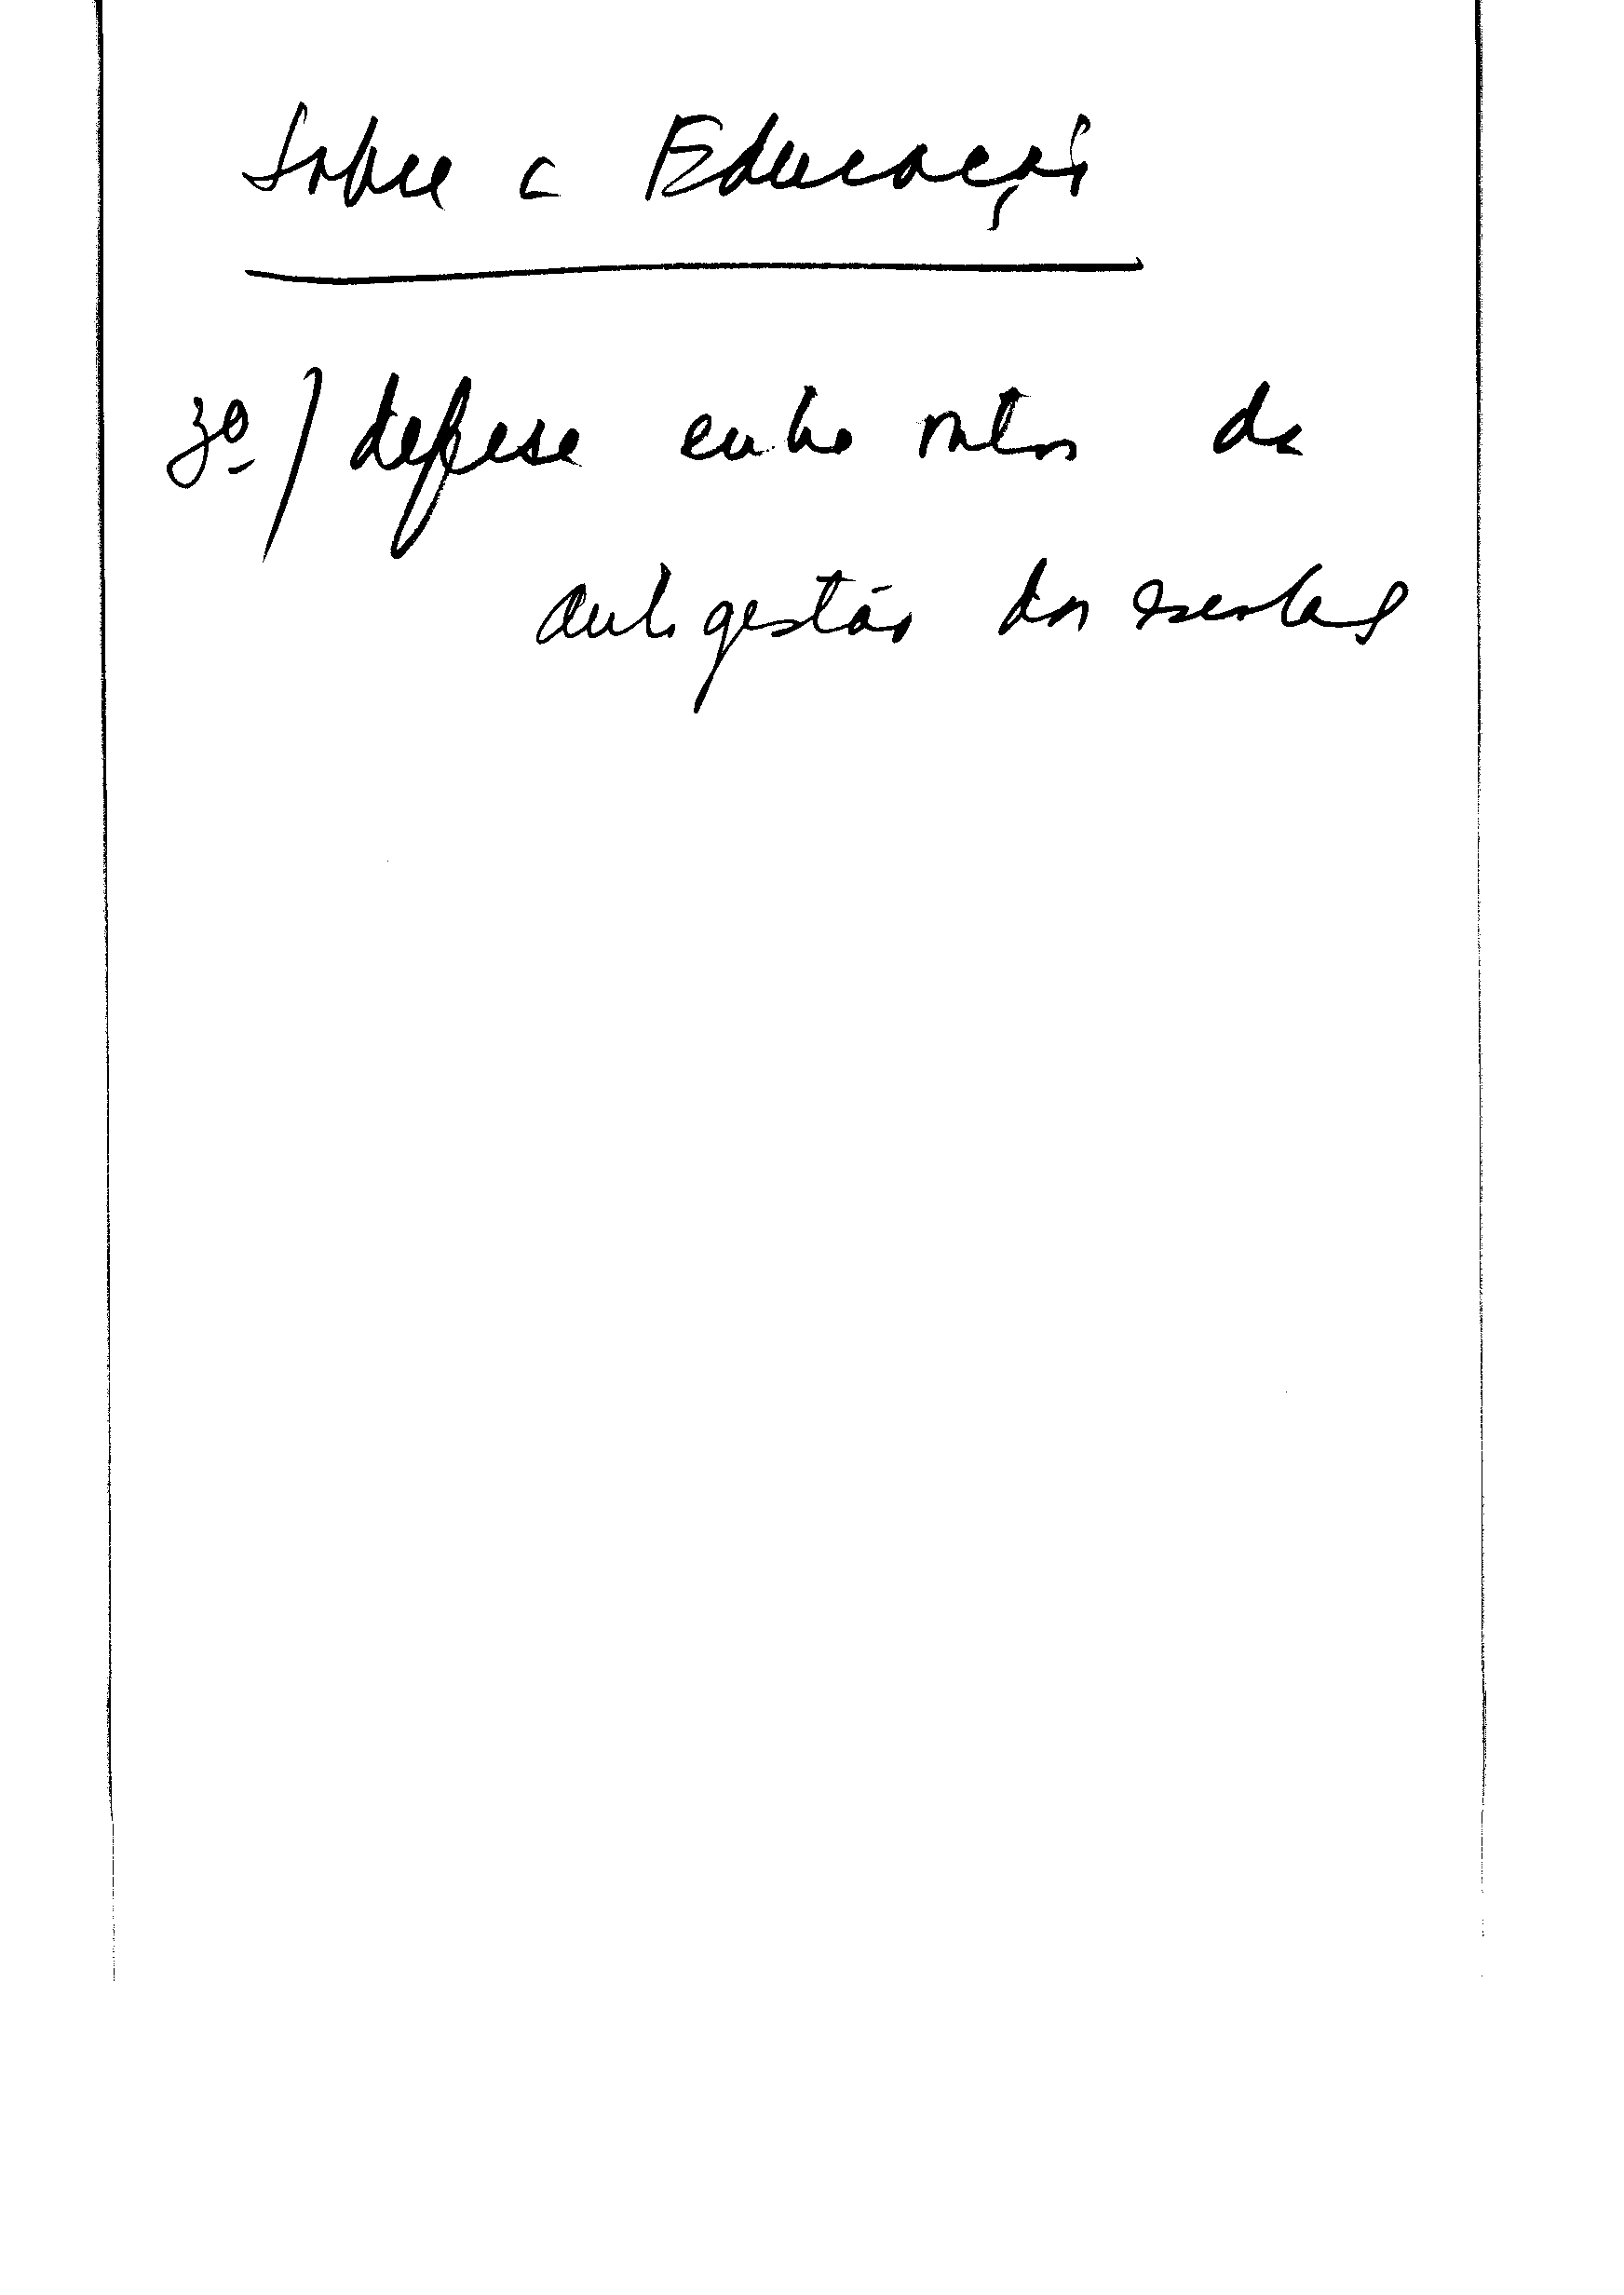 Sobre a Educação
3º / defesa entre outros da
autogestão das escolas